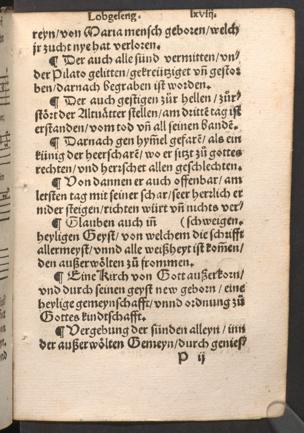 Lobgeseng. lxviij.
reyn/von Maria mensch geboren/welch
jr zucht nye hat verloren.
¶ Der auch alle sünd vermitten/vnd
der Pilato gelitten/gekreütziget vn̄ gestor
ben/darnach begraben ist worden.
¶ Der auch gestigen zür hellen/zür
stört der Altuätter stellen/am dritte tag ist
erstanden/vom tod vn̄ all seinen bandē.
¶ Darnach gen hym̄el gefarē/als ein
künig der heerscharē/wo er sitzt zů gottes
rechten/vnd herrschet allen geschlechten.
¶ Von dannen er auch offenbar/am
letsten tag mit seiner schar/seer herzlich er
nider steigen/richten würt vn̄ nichts ver-
¶ Glauben auch in (schweigen.
heyligen Geyst/von welchem die schrifft
allermeyst/vnnd alle weißheyt ist kom̄en/
den außerwölten zů frommen.
¶ Eine Kirch von Gott außerkorn/
vnd durch seinen geyst new geborn/eine
heylige gemeynschafft/vnnd ordnung zů
Gottes kindtschafft.
¶ Vergebung der sünden alleyn/inn
der außerwölten Gemeyn/durch geniesz
P ij